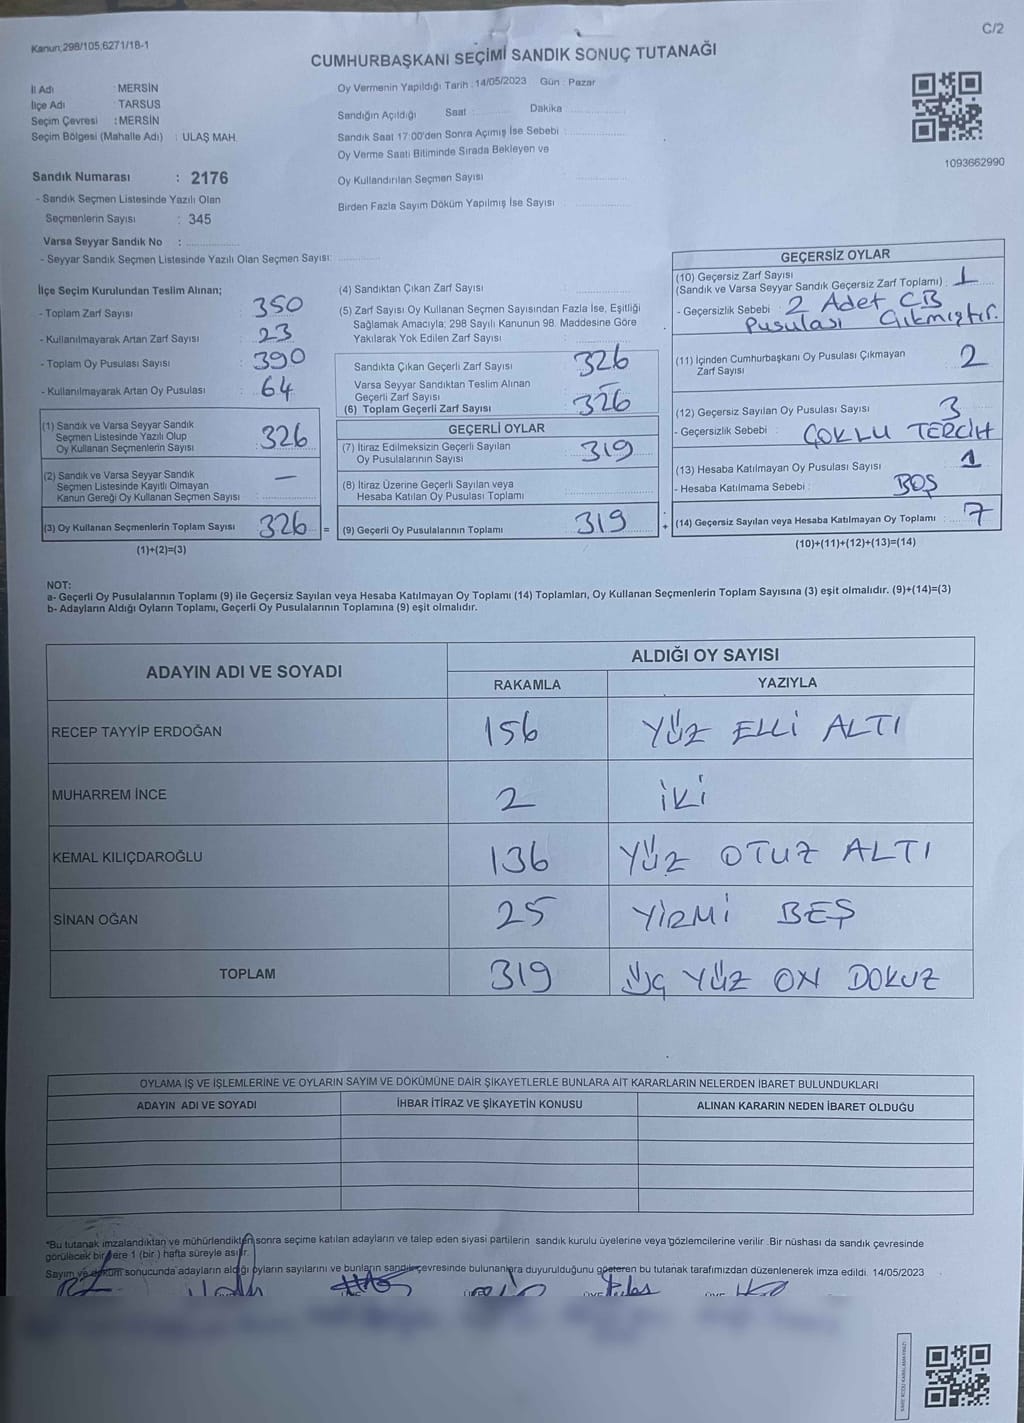 Kanun;298/105;6271/18-1
C/2
CUMHURBAŞKANI SEÇİMİ SANDIK SONUÇ TUTANAĞI
İl Adı : MERSİN
İlçe Adı : TARSUS
Seçim Çevresi : MERSİN
Seçim Bölgesi (Mahalle Adı) : ULAŞ MAH.
Oy Vermenin Yapıldığı Tarih : 14/05/2023 Gün : Pazar
Sandığın Açıldığı Saat : Dakika
Sandık Saat 17:00'den Sonra Açımış İse Sebebi :
Oy Verme Saati Bitiminde Sırada Bekleyen ve
Oy Kullandırılan Seçmen Sayısı
Birden Fazla Sayım Döküm Yapılmış İse Sayısı
1093662990
Sandık Numarası : 2176
- Sandık Seçmen Listesinde Yazılı Olan
Seçmenlerin Sayısı : 345
Varsa Seyyar Sandık No :
- Seyyar Sandık Seçmen Listesinde Yazılı Olan Seçmen Sayısı:
İlçe Seçim Kurulundan Teslim Alınan;
- Toplam Zarf Sayısı : 350
- Kullanılmayarak Artan Zarf Sayısı : 23
- Toplam Oy Pusulası Sayısı : 390
- Kullanılmayarak Artan Oy Pusulası : 64
(1) Sandık ve Varsa Seyyar Sandık
Seçmen Listesinde Yazılı Olup
Oy Kullanan Seçmenlerin Sayısı : 326
(2) Sandık ve Varsa Seyyar Sandık
Seçmen Listesinde Kayıtlı Olmayan
Kanun Gereği Oy Kullanan Seçmen Sayısı : —
(3) Oy Kullanan Seçmenlerin Toplam Sayısı 326 =
(1)+(2)=(3)
(4) Sandıktan Çıkan Zarf Sayısı
(5) Zarf Sayısı Oy Kullanan Seçmen Sayısından Fazla İse, Eşitliği
Sağlamak Amacıyla; 298 Sayılı Kanunun 98. Maddesine Göre
Yakılarak Yok Edilen Zarf Sayısı
Sandıkta Çıkan Geçerli Zarf Sayısı 326
Varsa Seyyar Sandıktan Teslim Alınan
Geçerli Zarf Sayısı —
(6) Toplam Geçerli Zarf Sayısı 326
GEÇERLİ OYLAR
(7) İtiraz Edilmeksizin Geçerli Sayılan
Oy Pusulalarının Sayısı 319
(8) İtiraz Üzerine Geçerli Sayılan veya
Hesaba Katılan Oy Pusulası Toplamı
(9) Geçerli Oy Pusulalarının Toplamı 319 +
GEÇERSİZ OYLAR
(10) Geçersiz Zarf Sayısı
(Sandık ve Varsa Seyyar Sandık Geçersiz Zarf Toplamı) : 1
- Geçersizlik Sebebi : 2 Adet CB
Pusulası Çıkmıştır.
(11) İçinden Cumhurbaşkanı Oy Pusulası Çıkmayan
Zarf Sayısı 2
(12) Geçersiz Sayılan Oy Pusulası Sayısı 3
- Geçersizlik Sebebi : ÇOKLU TERCİH
(13) Hesaba Katılmayan Oy Pusulası Sayısı 1
- Hesaba Katılmama Sebebi : BOŞ
(14) Geçersiz Sayılan veya Hesaba Katılmayan Oy Toplamı : 7
(10)+(11)+(12)+(13)=(14)
NOT:
a- Geçerli Oy Pusulalarının Toplamı (9) ile Geçersiz Sayılan veya Hesaba Katılmayan Oy Toplamı (14) Toplamları, Oy Kullanan Seçmenlerin Toplam Sayısına (3) eşit olmalıdır. (9)+(14)=(3)
b- Adayların Aldığı Oyların Toplamı, Geçerli Oy Pusulalarının Toplamına (9) eşit olmalıdır.
ADAYIN ADI VE SOYADI
ALDIĞI OY SAYISI
RAKAMLA YAZIYLA
RECEP TAYYİP ERDOĞAN 156 YÜZ ELLİ ALTI
MUHARREM İNCE 2 İKİ
KEMAL KILIÇDAROĞLU 136 YÜZ OTUZ ALTI
SİNAN OĞAN 25 YİRMİ BEŞ
TOPLAM 319 ÜÇ YÜZ ON DOKUZ
OYLAMA İŞ VE İŞLEMLERİNE VE OYLARIN SAYIM VE DÖKÜMÜNE DAİR ŞİKAYETLERLE BUNLARA AİT KARARLARIN NELERDEN İBARET BULUNDUKLARI
ADAYIN ADI VE SOYADI İHBAR İTİRAZ VE ŞİKAYETİN KONUSU ALINAN KARARIN NEDEN İBARET OLDUĞU
"Bu tutanak imzalandıktan ve mühürlendikten sonra seçime katılan adayların ve talep eden siyasi partilerin sandık kurulu üyelerine veya gözlemcilerine verilir. Bir nüshası da sandık çevresinde
görülecek bir yere 1 (bir) hafta süreyle asılır.
Sayım ve döküm sonucunda adayların aldığı oyların sayılarını ve bunların sandık çevresinde bulunanlara duyurulduğunu gösteren bu tutanak tarafımızdan düzenlenerek imza edildi. 14/05/2023